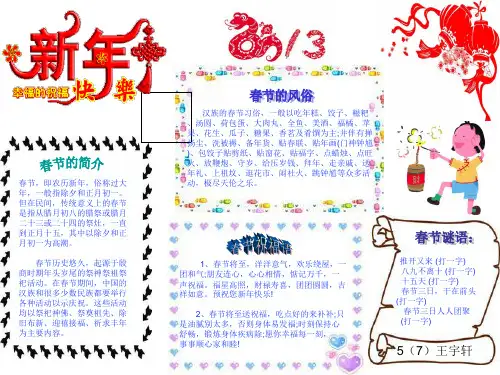 新年
幸福的祝福 快樂
13
春节的简介
春节，即农历新年，俗称过大
年。一般指除夕和正月初一。
但在民间，传统意义上的春节
是指从腊月初八的腊祭或腊月
二十三或二十四的祭灶，一直
到正月十五，其中以除夕和正
月初一为高潮。
春节历史悠久，起源于殷
商时期年头岁尾的祭神祭祖祭
祀活动。在春节期间，中国的
汉族和很多少数民族都要举行
各种活动以示庆祝。这些活动
均以祭祀神佛、祭奠祖先、除
旧布新、迎禧接福、祈求丰年
为主要内容。
春节的风俗
汉族的春节习俗，一般以吃年糕、饺子、糍粑
汤圆、荷包蛋、大肉丸、全鱼、美酒、福橘、苹
、花生、瓜子、糖果、香茗及肴馔为主;并伴有掸
扬尘、洗被褥、备年货、贴春联、贴年画(门神钟馗
、包饺子贴剪纸、贴窗花、贴福字、点蜡烛、点旺
、放鞭炮、守岁、给压岁钱、拜年、走亲戚、送
年礼、上祖坟、逛花市、闹社火、跳钟馗等众多活
动，极尽天伦之乐。
春节祝福语
1、春节将至，洋洋意气，欢乐绕屋，一
团和气;朋友连心，心心相情，惦记万千，一
声祝福。福星高照，财禄寿喜，团团圆圆，吉
祥如意。预祝您新年快乐!
2、春节将至送祝福，吃点好的来补补;只
是油腻别太多，否则身体易发福;时刻保持心
舒畅，锻炼身体疾病除;愿你幸福每一刻，
事事顺心家和睦!
春节谜语:
推开又来 (打一字)
八九不离十 (打一字)
十五天 (打一字)
春节三日，干在前头
(打一字)
春节三日人人团聚
(打一字)
5（7）王宇轩